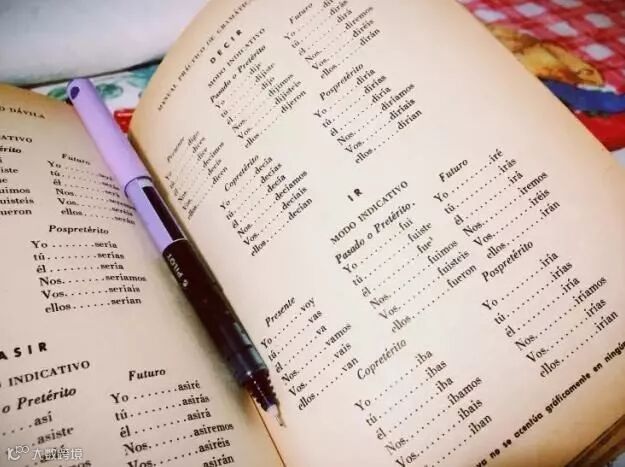 O DÁVILA
INDICATIVO
Futuro
Yo.......seré
tú.......serás
él.......será
Nos.
Vos.
ellos.....serán
Pospretérito
Yo.......sería
tú.......serías
él.......sería
Nos......seríamos
Vos......seríais
ellos......serían
ASIR
INDICATIVO
o Pretérito
así
asiste
Futuro
Yo.......asiré
tú.......asirás
él.......asirá
Nos......asiremos
Vos......asiréis
ellos......asirán
PILOT
MANUAL PRÁCTICO DE GRAMÁTICA
DECIR
MODO INDICATIVO
Presente
digo
dices
dice
decimos
decís
dicen
Pasado o Pretérito
Yo.......dije
tú.......dijiste
él.......dijo
Nos......dijimos
Vos......dijisteis
ellos.....dijeron
Futuro
tú.......dirás
él.......dirá
Nos......diremos
Vos......diréis
ellos......dirán
Copretérito
Yo.......decía
tú.......decías
él.......decía
Nos......decíamos
Vos......decíais
ellos......decían
Pospretérito
Yo.......diría
tú.......dirías
él.......diría
Nos......diríamos
Vos......diríais
ellos......dirían
IR
MODO INDICATIVO
Presente
Yo.......voy
tú.......vas
él.......va
Nos......vamos
Vos......vais
ellos......van
Pasado o Pretérito.
Yo.......fui
tú.......fuiste
él.......fue
Nos......fuimos
Vos......fuisteis
ellos......fueron
Futuro
Yo.......iré
tú.......irás
él.......irá
Nos......iremos
Vos......iréis
ellos......irán
Copretérito
Yo.......iba
tú.......ibas
él.......iba
Nos......íbamos
Vos......ibais
ellos......iban
Pospretérito
Yo.......iría
tú.......irías
él.......iría
Nos......iríamos
Vos......iríais
ellos......irían
no se acentúa gráficamente en ningún
大数跨境